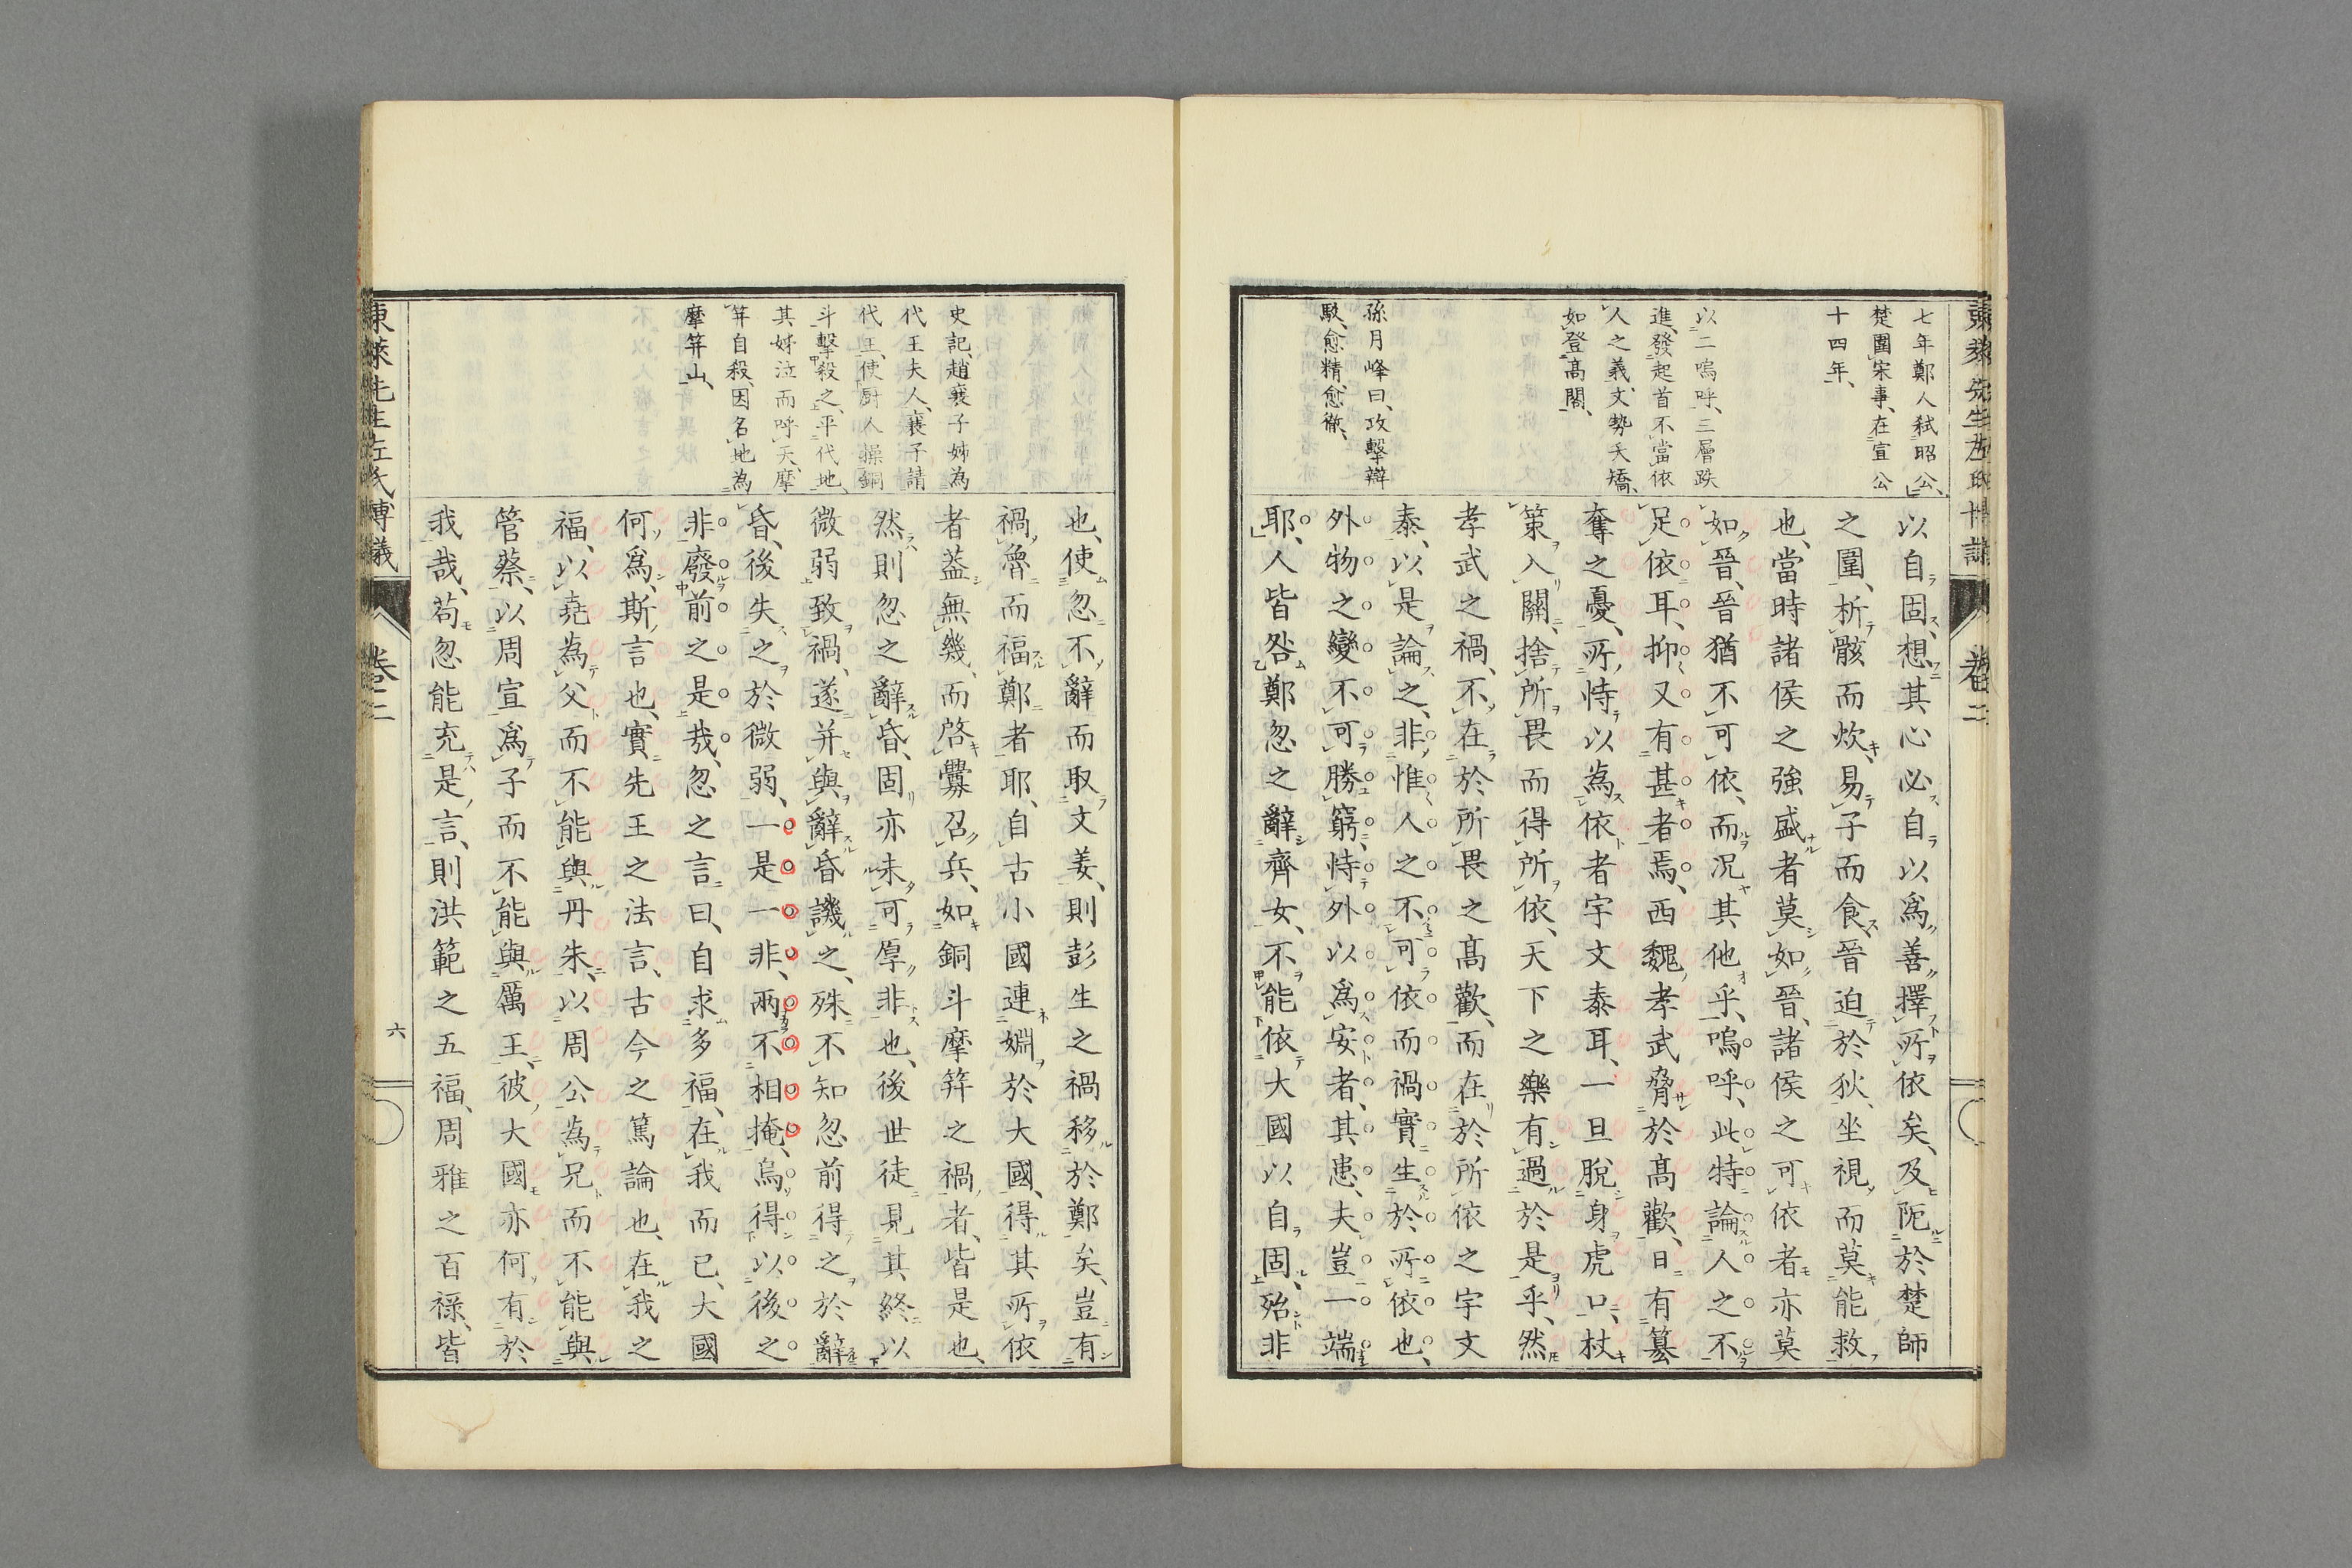 七年鄭人弑昭公、
楚圍宋事、在宣公
十四年、
以二嗚呼、三層跌
進、發起首不當依
人之義、文勢夭矯、
如登高閣、
孫月峰曰、攻擊辯
駁、愈精、愈徹、
以自固、想其心必自以爲善擇所依矣、及阨於楚師
之圍、析骸而炊、易子而食、晉迫於狄、坐視而莫能救
也、當時諸侯之強盛者莫如晉、諸侯之可依者亦莫
如晉、晉猶不可依、而況其他乎、嗚呼、此特論人之不
足依耳、抑又有甚者焉、西魏孝武脅於高歡、日有簒
奪之憂、所恃以為依者宇文泰耳、一旦脫身虎口、杖
策入關、捨所畏而得所依、天下之樂有過於是乎、然
孝武之禍、不在於所畏之高歡、而在於所依之宇文
泰、以是論之、非惟人之不可依而禍實生於所依也、
外物之變不可勝窮、恃外以爲安者、其患、夫豈一端
耶、人皆咎鄭忽之辭齊女、不能依大國以自固、殆非
東萊先生左氏博議
卷二
史記、趙襄子姊為
代王夫人、襄子請
代王、使厨人操銅
斗擊殺之、平代地、
其姊泣而呼天、摩
笄自殺、因名地為
摩笄山、
也、使忽不辭而取文姜、則彭生之禍移於鄭矣、豈有
禍魯而福鄭者耶、自古小國連婣於大國、得其所依
者蓋無幾、而啓釁召兵、如銅斗摩笄之禍者、皆是也、
然則忽之辭昏、固亦未可厚非也、後世徒見其終以
微弱致禍、遂并與辭昏譏之、殊不知忽前得之於辭
昏、後失之於微弱、一是一非、兩不相掩、烏得以後之
非廢前之是哉、忽之言曰、自求多福、在我而已、大國
何爲、斯言也、實先王之法言、古今之篤論也、在我之
福、以堯為父而不能與丹朱、以周公為兄而不能與
管蔡、以周宣爲子而不能與厲王、彼大國亦何有於
我哉、苟忽能充是言、則洪範之五福、周雅之百祿、皆
東萊先生左氏博議
卷二
六